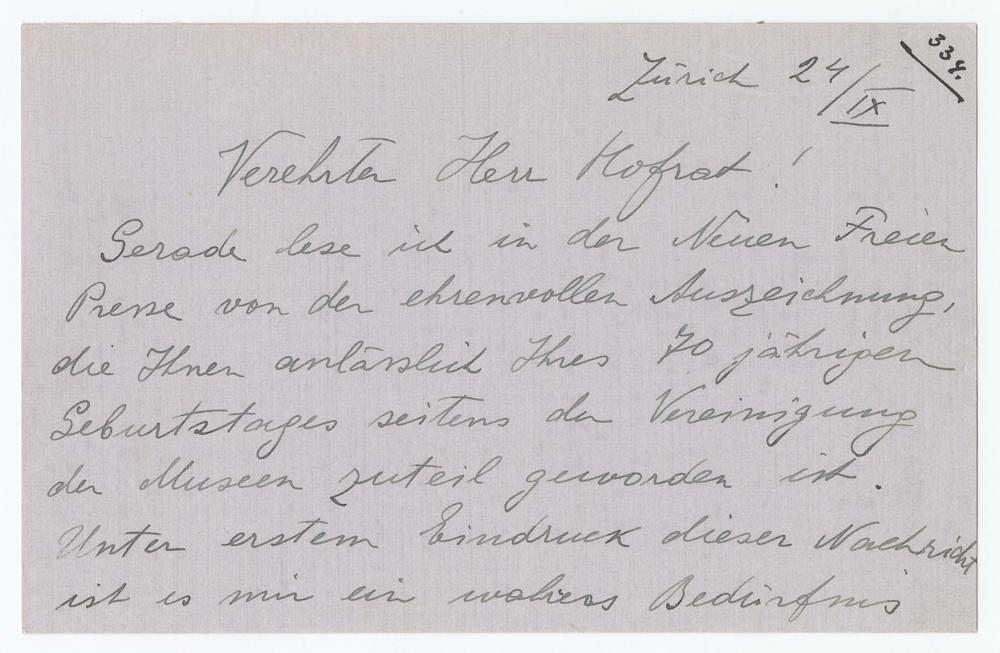 334.
Zürich 24/IX
Verehrter Herr Hofrat!
Gerade lese ich in der Neuen Freien
Presse von der ehrenvollen Auszeichnung,
die Ihnen anlässlich Ihres 70 jährigen
Geburtstages seitens der Vereinigung
der Museen zuteil geworden ist.
Unter erstem Eindruck dieser Nachricht
ist es mir ein wahres Bedürfnis